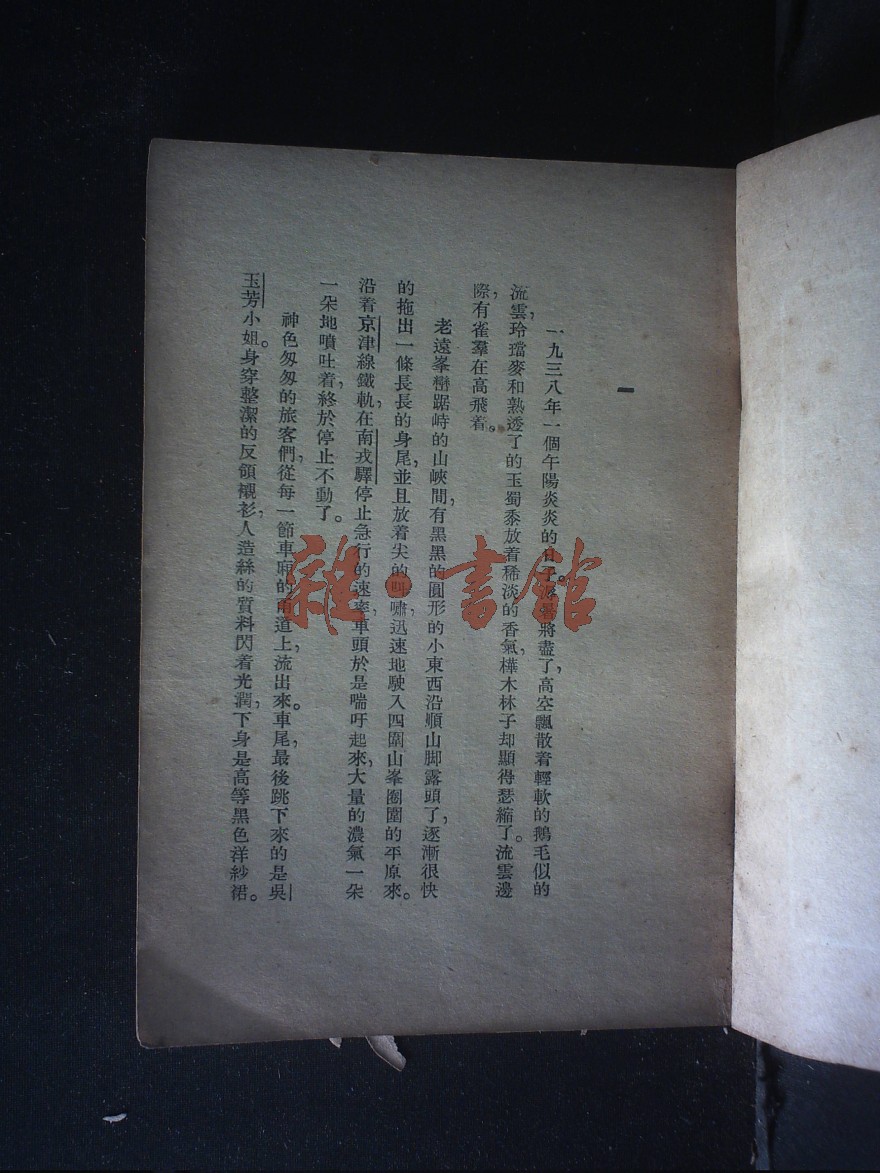 一
一九三八年一個午陽炎炎的日子。將盡了，高空飄散着輕軟的鵝毛似的
流雲，玲璫麥和熟透了的玉蜀黍放着稀淡的香氣，樺木林子却顯得瑟縮了。流雲邊
際，有雀羣在高飛着。
老遠峯巒踞峙的山峽間，有黑黑的圓形的小東西沿順山脚露頭了，逐漸很快
的拖出一條長長的身尾，並且放着尖的叫嘯，迅速地駛入四圍山峯圈圍的平原來。
沿着京津線鐵軌，在南戎驛停止急行的速率，車頭於是喘吁起來，大量的濃氣一朵
一朵地噴吐着，終於停止不動了。
神色匆匆的旅客們，從每一節車廂的甬道上，流出來。車尾，最後跳下來的是吳
玉芳小姐。身穿整潔的反領襯衫，人造絲的質料閃着光潤，下身是高等黑色洋紗裙。
雜·書館